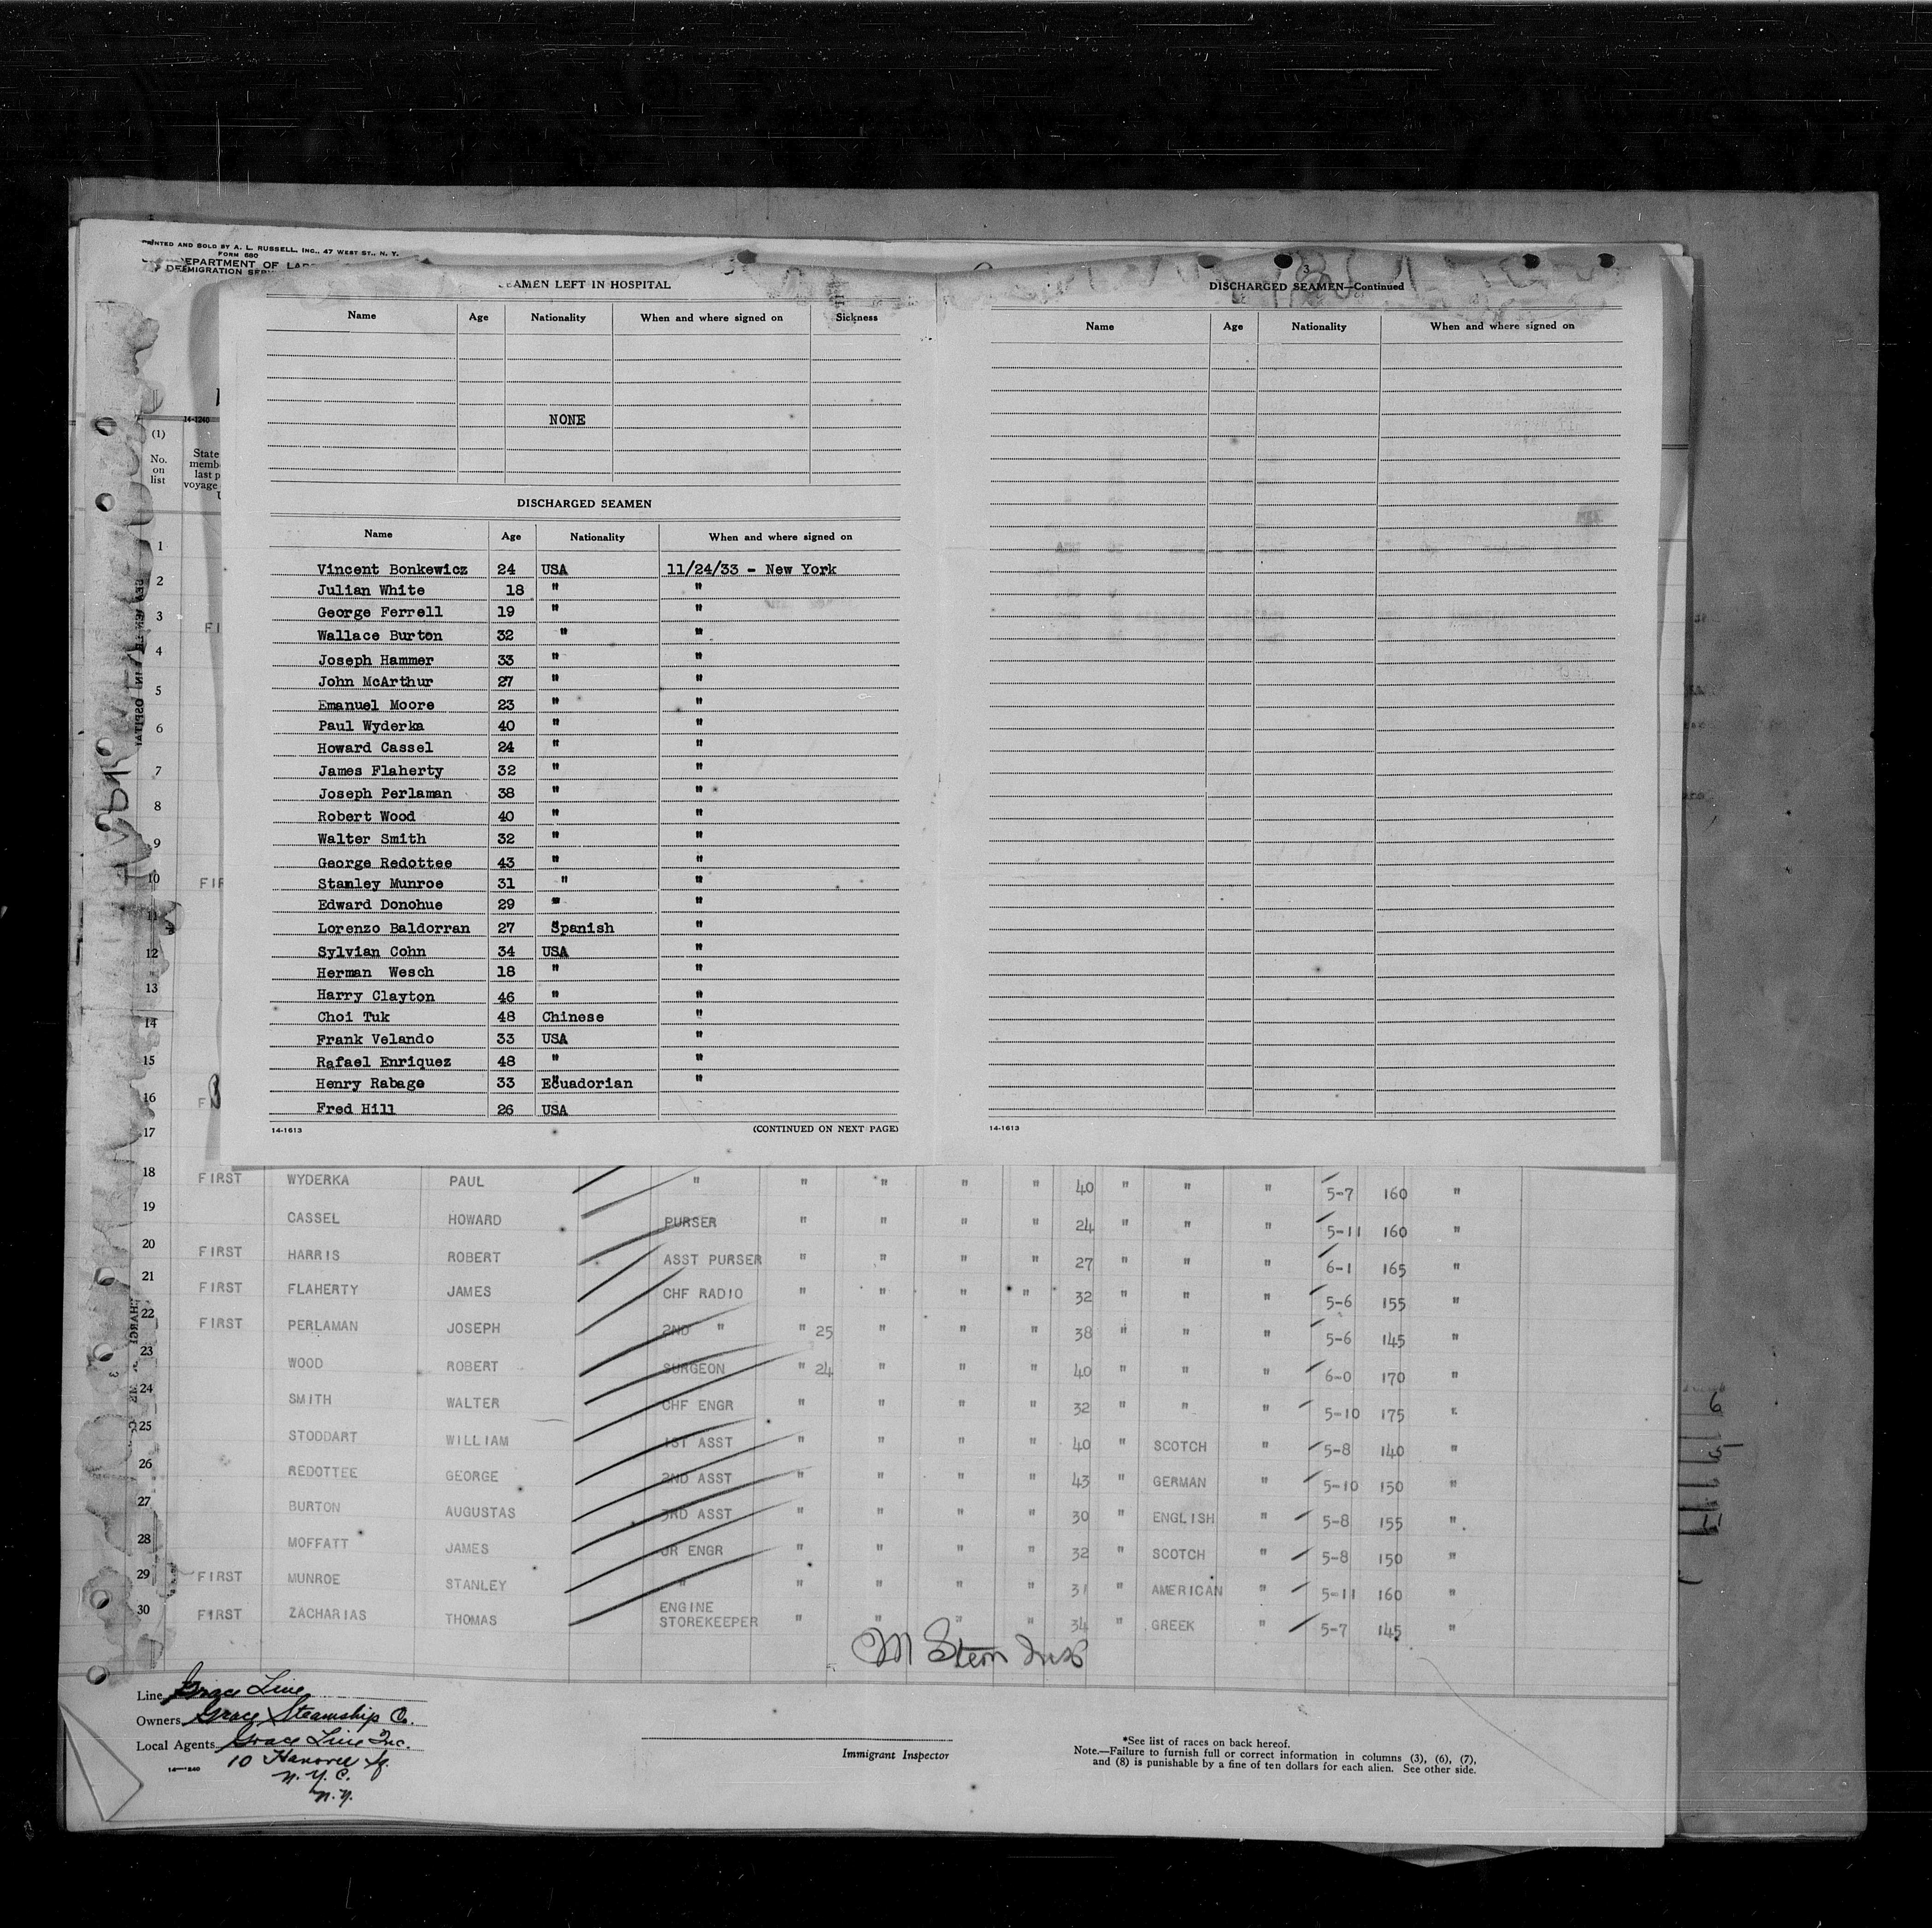 PRINTED AND SOLD BY A. L. RUSSELL, INC., 47 WEST ST., N. Y.
FORM 680
DEPARTMENT OF
SEAMEN LEFT IN HOSPITAL
Name Age Nationality When and where signed on Sickness
NONE
DISCHARGED SEAMEN
Name Age Nationality When and where signed on
Vincent Bonkewicz 24 USA 11/24/33 - New York
Julian White 18 " "
George Ferrell 19 " "
Wallace Burton 32 " "
Joseph Hammer 33 " "
John McArthur 27 " "
Emanuel Moore 23 " "
Paul Wyderka 40 " "
Howard Cassel 24 " "
James Flaherty 32 " "
Joseph Perlaman 38 " "
Robert Wood 40 " "
Walter Smith 32 " "
George Redottee 43 " "
Stanley Munroe 31 " "
Edward Donohue 29 " "
Lorenzo Baldorran 27 Spanish "
Sylvian Cohn 34 USA "
Herman Wesch 18 " "
Harry Clayton 46 " "
Choi Tuk 48 Chinese "
Frank Velando 33 USA "
Rafael Enriquez 48 " "
Henry Rabage 33 Ecuadorian "
Fred Hill 26 USA
14-1613 (CONTINUED ON NEXT PAGE)
3
DISCHARGED SEAMEN—Continued
Name Age Nationality When and where signed on
14-1613
14-1240
(1)
No. on list
State
memb
last p
voyage
1
2
3
4
5
6
7
8
9
10
11
12
13
14
15
16
17
18 FIRST WYDERKA PAUL " " " " " 40 " " " 5-7 160 "
19 CASSEL HOWARD PURSER " " " " 24 " " " 5-11 160 "
20 FIRST HARRIS ROBERT ASST PURSER " " " " 27 " " " 6-1 165 "
21 FIRST FLAHERTY JAMES CHF RADIO " " " " 32 " " " 5-6 155 "
22 FIRST PERLAMAN JOSEPH 2ND " " 25 " " " 38 " " " 5-6 145 "
23 WOOD ROBERT SURGEON " 24 " " " 40 " " " 6-0 170 "
24 SMITH WALTER CHF ENGR " " " " 32 " " " 5-10 175 "
25 STODDART WILLIAM 1ST ASST " " " " 40 " SCOTCH " 5-8 140 "
26 REDOTTEE GEORGE 2ND ASST " " " " 43 " GERMAN " 5-10 150 "
27 BURTON AUGUSTAS 3RD ASST " " " " 30 " ENGLISH " 5-8 155 "
28 MOFFATT JAMES JR ENGR " " " " 32 " SCOTCH " 5-8 150 "
29 FIRST MUNROE STANLEY " " " " " 31 " AMERICAN " 5-11 160 "
30 FIRST ZACHARIAS THOMAS ENGINE STOREKEEPER " " " " 34 " GREEK " 5-7 145 "
M Stern Ins
Line Grace Line
Owners Grace Steamship Co.
Local Agents Grace Line Inc.
10 Hanover Sq.
N. Y. C.
N. Y.
Immigrant Inspector
*See list of races on back hereof.
Note.—Failure to furnish full or correct information in columns (3), (6), (7),
and (8) is punishable by a fine of ten dollars for each alien. See other side.